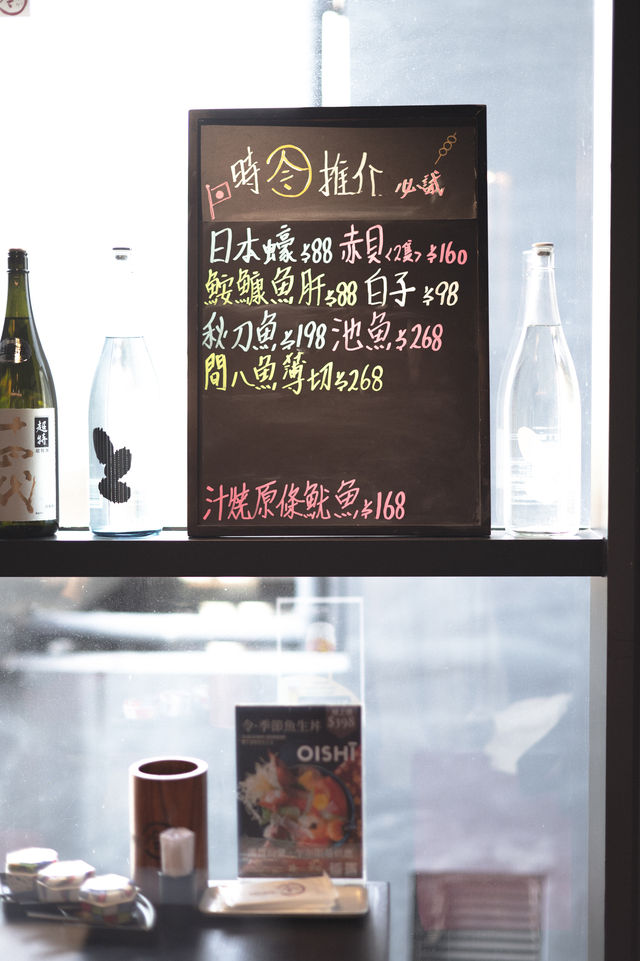 時令推介 必識
日本蠔 $88 赤貝<2隻> $160
鮟鱇魚肝 $88 白子 $98
秋刀魚 $198 池魚 $268
間八魚薄切 $268
汁燒原條魷魚 $168
超特
十四代
令·季節魚生丼
$398
OISHI